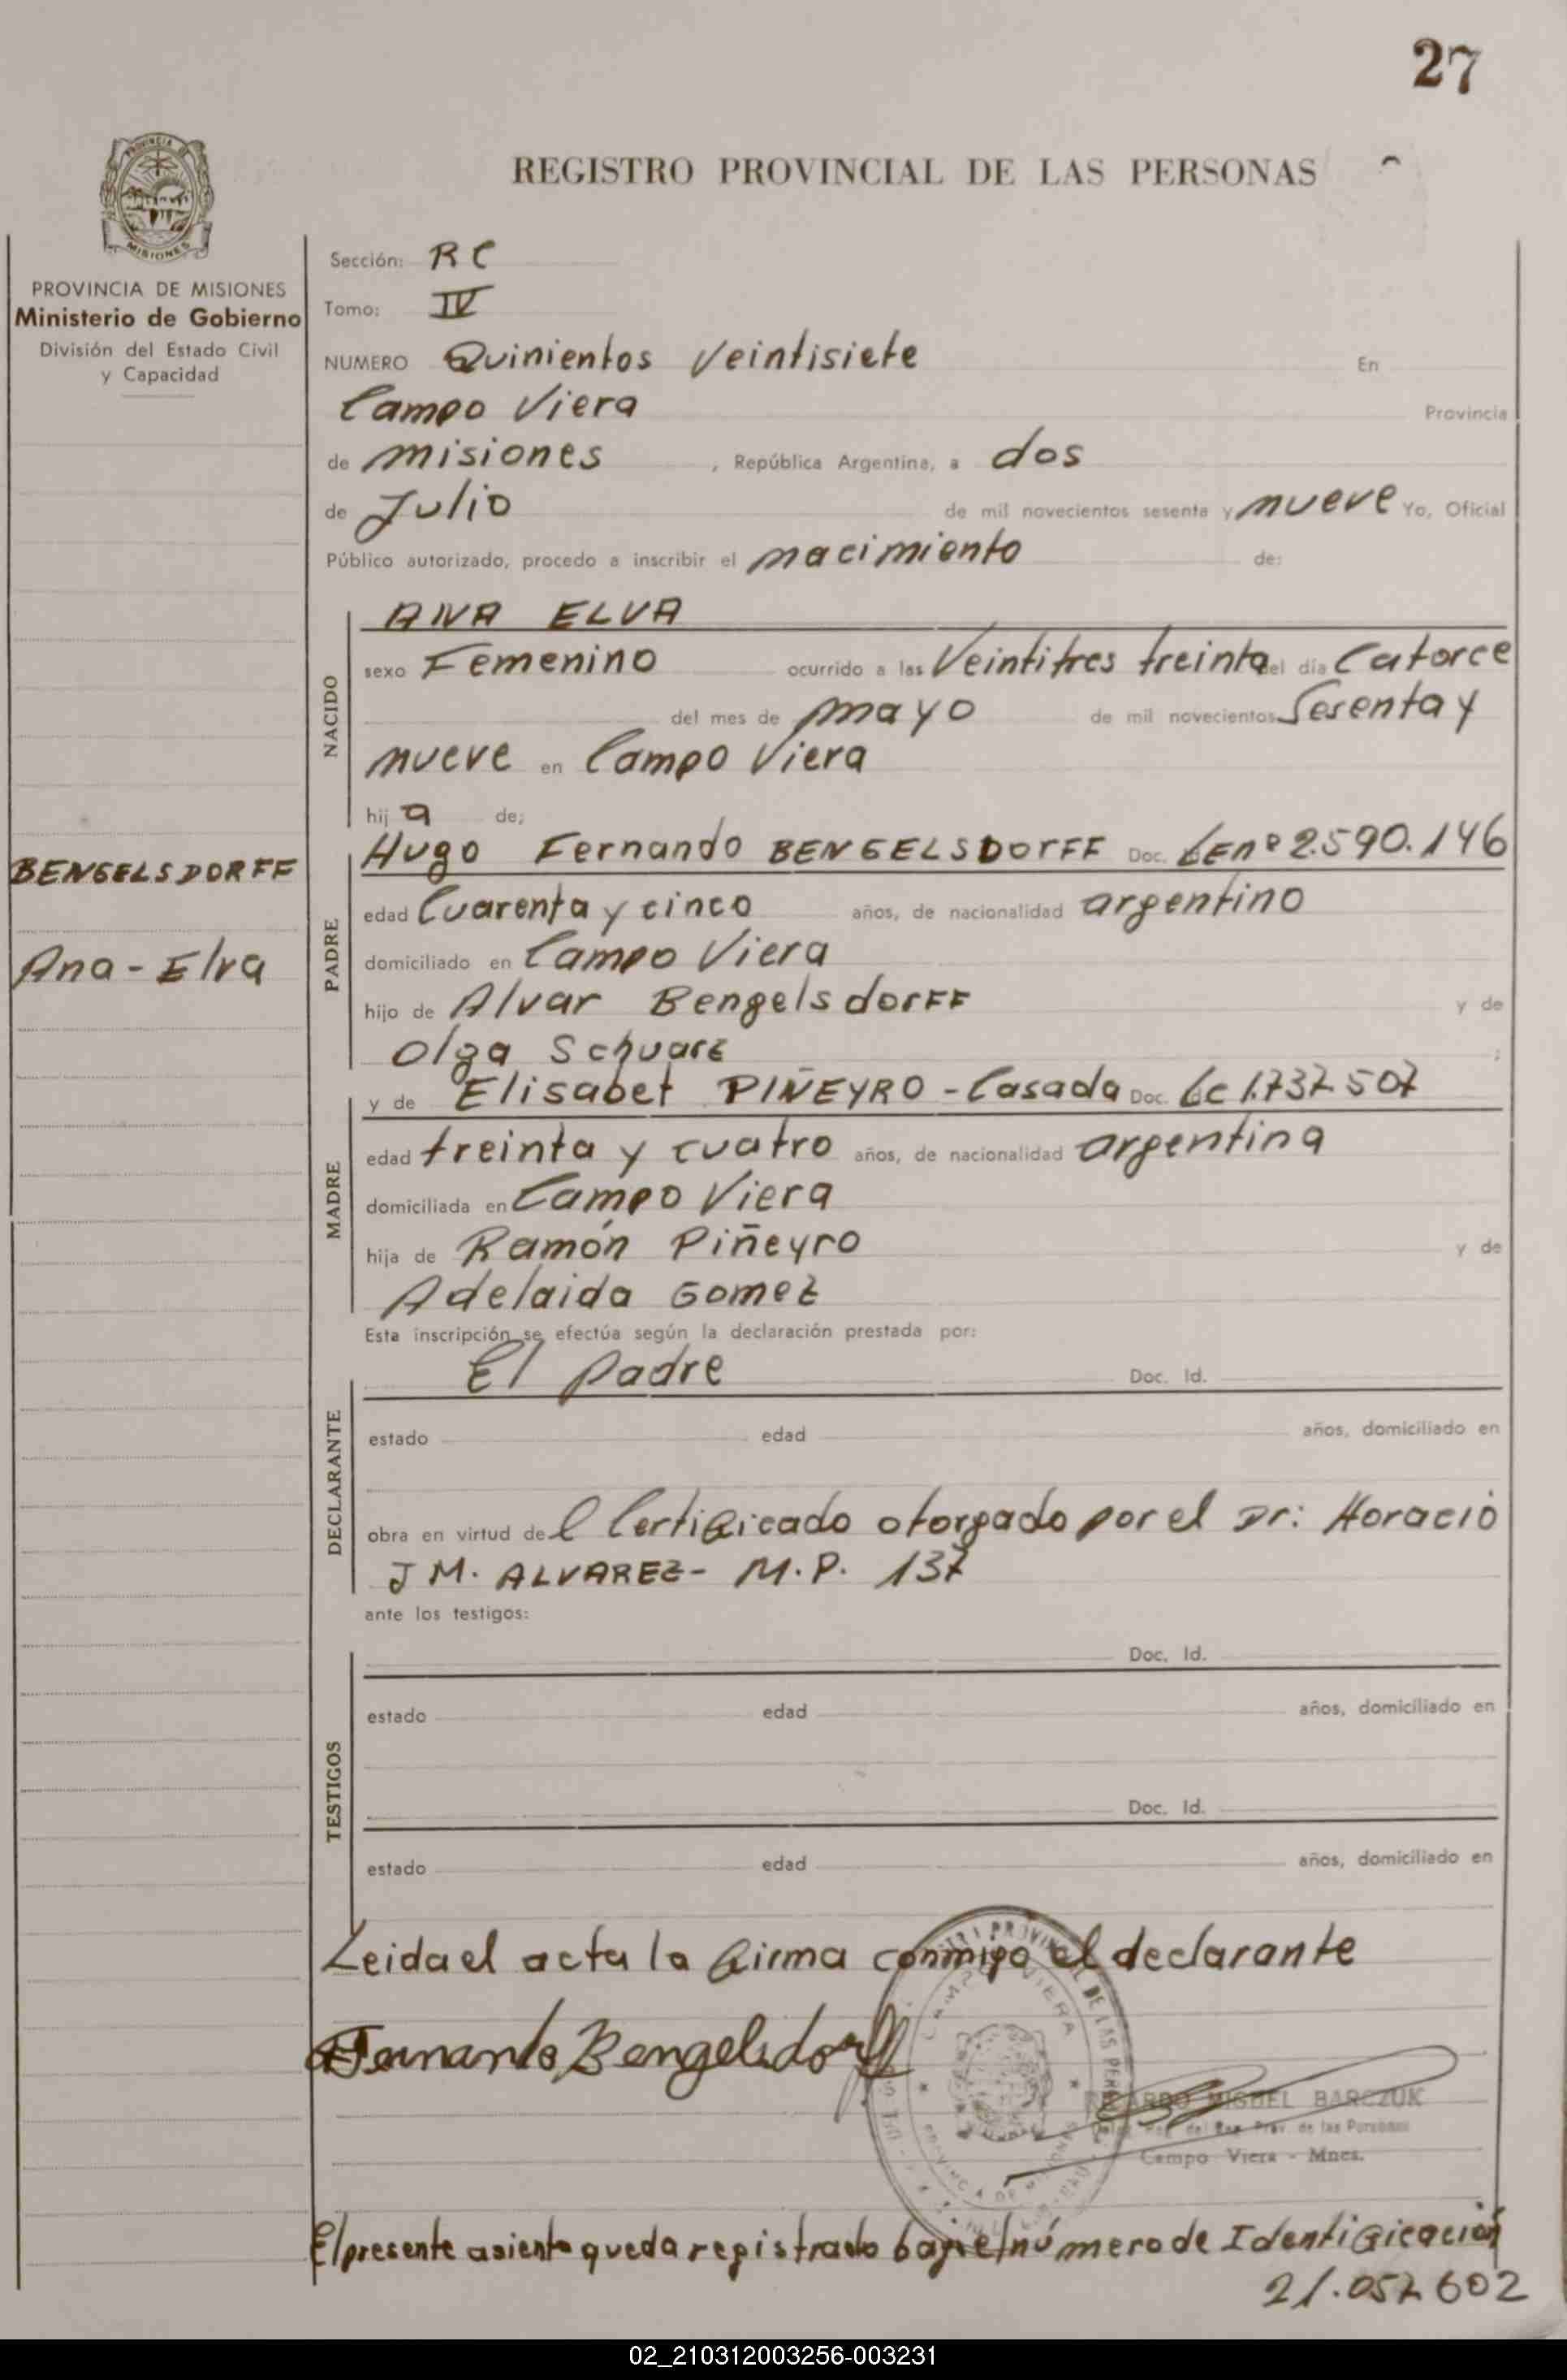 27
REGISTRO PROVINCIAL DE LAS PERSONAS
PROVINCIA DE MISIONES
PROVINCIA DE MISIONES
Ministerio de Gobierno
División del Estado Civil
y Capacidad
BENGELSDORFF
Ana - Elva
Sección: RC
Tomo: IV
NUMERO Quinientos Veintisiete En
Campo Viera Provincia
de misiones , República Argentina, a dos
de Julio de mil novecientos sesenta y nueve Yo, Oficial
Público autorizado, procedo a inscribir el nacimiento de:
NACIDO
ANA ELVA
sexo Femenino ocurrido a las Veintitres treinta del día Catorce
del mes de mayo de mil novecientos Sesenta y
nueve en Campo Viera
hij a de;
PADRE
Hugo Fernando BENGELSDORFF Doc. LEnº 2.590.146
edad Cuarenta y cinco años, de nacionalidad argentino
domiciliado en Campo Viera
hijo de Alvar Bengelsdorff y de
Olga Schuarz ;
MADRE
y de Elisabet PIÑEYRO - Casada Doc. Lc 1.737507
edad treinta y cuatro años, de nacionalidad argentina
domiciliada en Campo Viera
hija de Ramón Piñeyro y de
Adelaida Gomez
Esta inscripción se efectúa según la declaración prestada por:
DECLARANTE
El padre Doc. Id.
estado edad años, domiciliado en
obra en virtud de l Certificado otorgado por el Dr: Horacio
J M. ALVAREZ - M.P. 137
ante los testigos:
TESTIGOS
Doc. Id.
estado edad años, domiciliado en
Doc. Id.
estado edad años, domiciliado en
Leida el acta la firma conmigo el declarante
Fernando Bengelsdorff
MIGUEL BARCZUK
del Reg. Prov. de las Personas
Campo Viera - Mnes.
El presente asiento queda registrado bajo el número de Identificación
21.057602
02_210312003256-003231